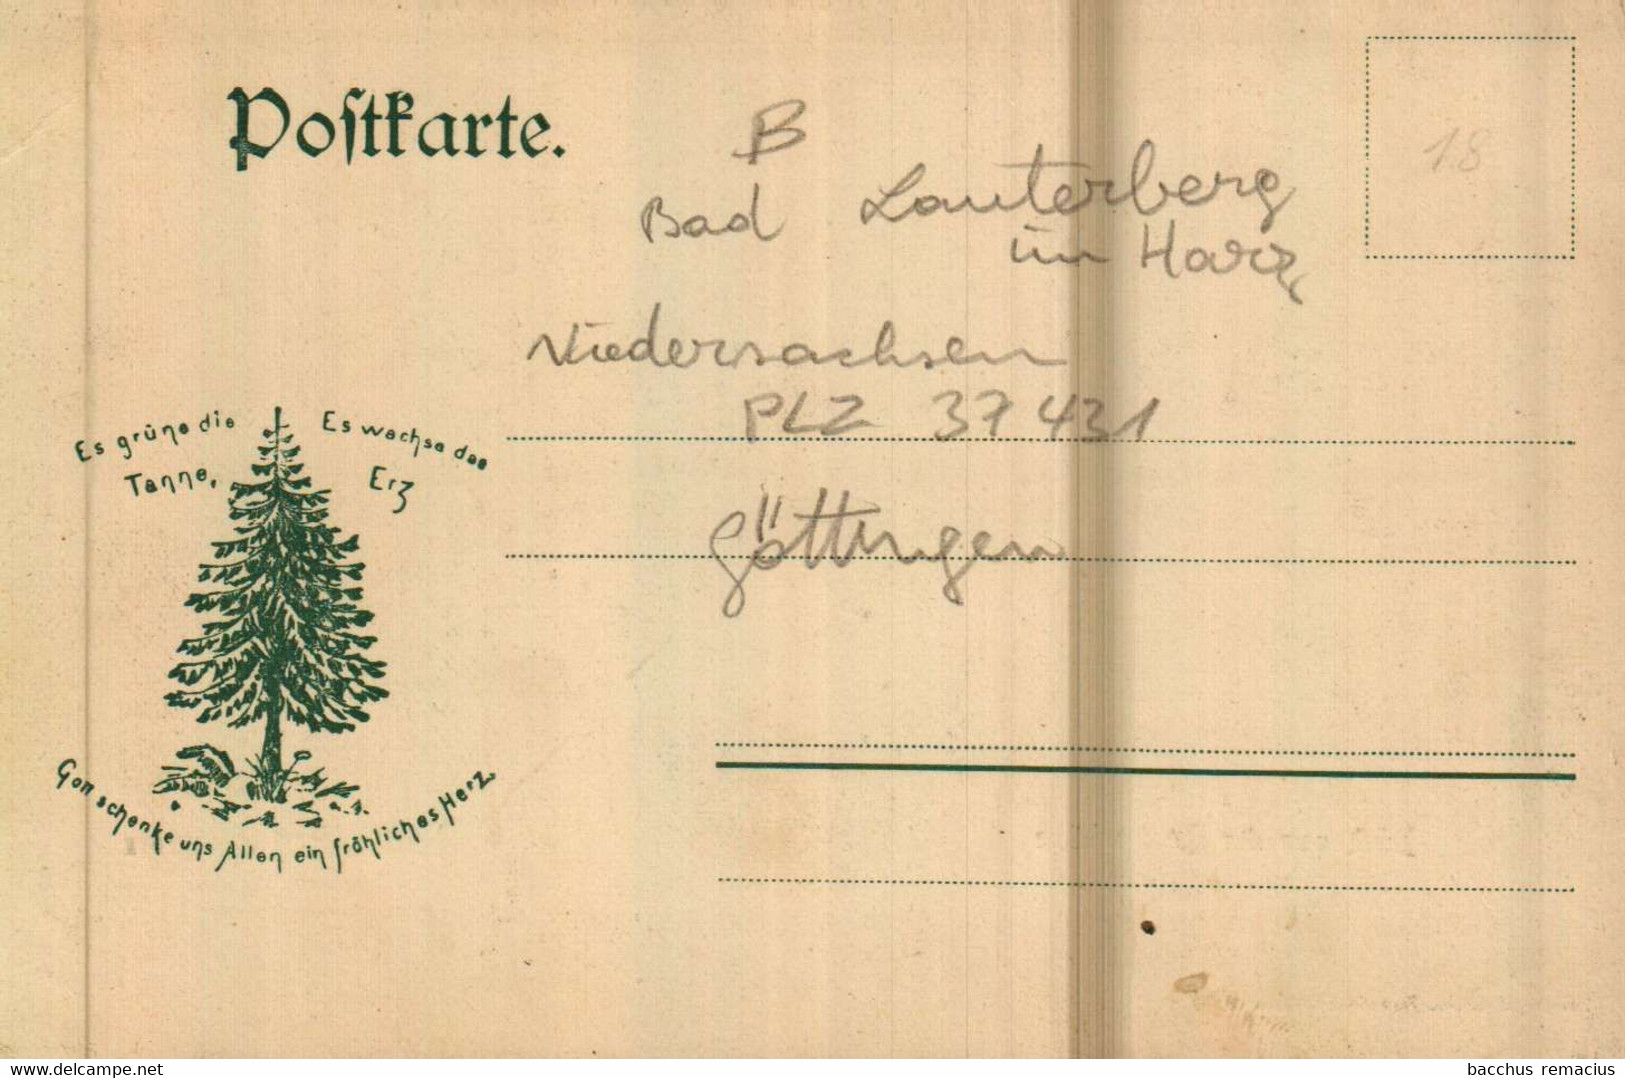 Postkarte.
18
B
Bad Lauterberg
im Harz
Niedersachsen
PLZ 37431
Göttingen
Es grüne die
Tanne,
Es wachse das
Erz
Gott schenke uns Allen ein fröhliches Herz.
www.delcampe.net
bacchus remacius